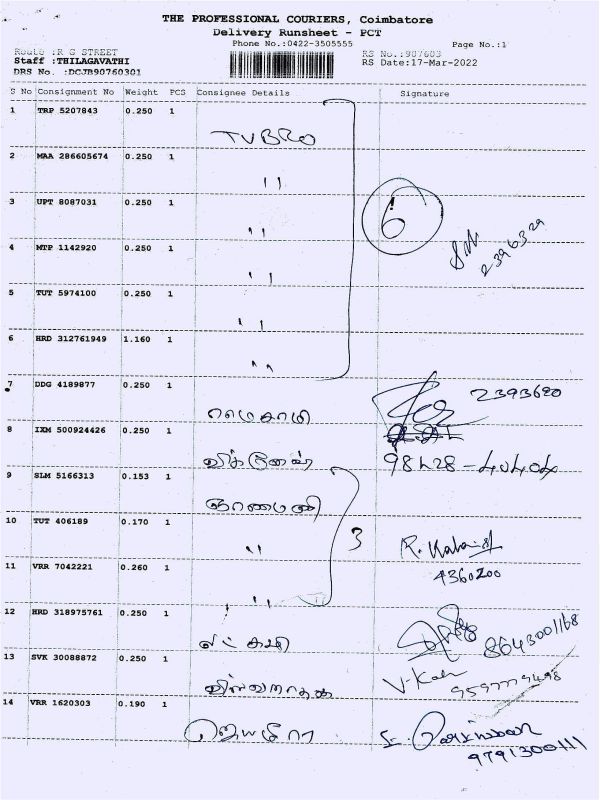 THE PROFESSIONAL COURIERS, Coimbatore
Delivery Runsheet - PCT
Phone No.:0422-3505555
Page No.:1
Route :R G STREET
RS No.:907603
Staff :THILAGAVATHI
RS Date:17-Mar-2022
DRS No. :DCJB90760301
S No Consignment No Weight PCS Consignee Details Signature
1 TRP 5207843 0.250 1
TVBRO
2 MAA 286605674 0.250 1
"
3 UPT 8087031 0.250 1
"
6
4 MTP 1142920 0.250 1
"
2396329
5 TUT 5974100 0.250 1
"
6 HRD 312761949 1.160 1
"
7 DDG 4189877 0.250 1
2393620
8 IXM 500924426 0.250 1
98428-40404
9 SLM 5166313 0.153 1
10 TUT 406189 0.170 1
"
3
11 VRR 7042221 0.260 1
4360200
"
12 HRD 318975761 0.250 1
8643001168
13 SVK 30088872 0.250 1
V-Kah
14 VRR 1620303 0.190 1
ஜெயமீரா
9791300111